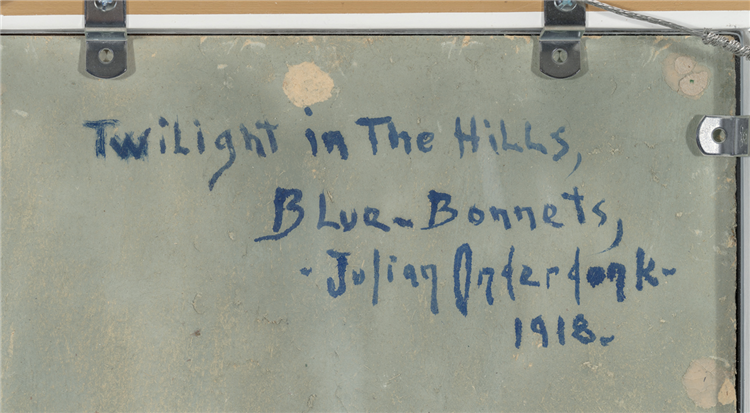 Twilight in The Hills,
Blue-Bonnets,
- Julian Onderdonk -
1918-